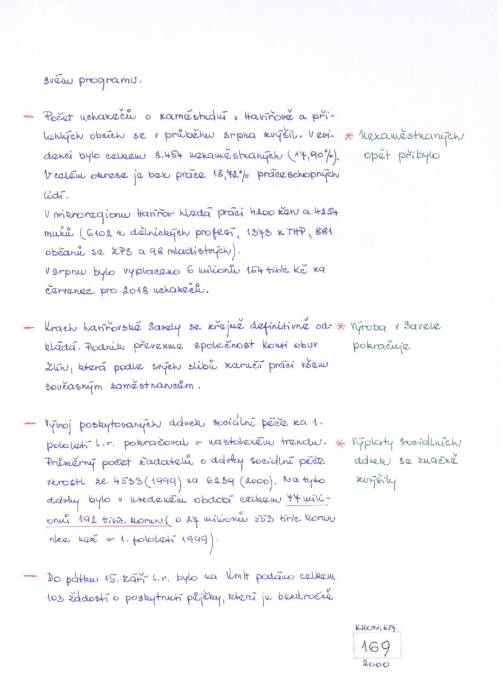 svém programu.
— Počet uchazečů o zaměstnání v Havířově a při-
lehlých obcích se v průběhu srpna zvýšil. V evi-
denci bylo celkem 8.454 nezaměstnaných (17,90%).
V celém okrese je bez práce 18,72% práceschopných
lidí.
V mikroregionu Havířov hledá práci 4200 žen a 4254
mužů (6102 z dělnických profesí, 1373 z THP, 881
občanů se ZPS a 98 mladistvých).
V srpnu bylo vyplaceno 6 milionů 154 tisíc Kč za
červenec pro 2018 uchazečů.
* Nezaměstnaných
opět přibylo
— Krach havířovské Savely se zřejmě definitivně od-
kládá. Podnik převezme společnost Konti obuv
Zlín, která podle svých slibů zaručí práci všem
současným zaměstnancům.
* Výroba v Savele
pokračuje
— Vývoj poskytovaných dávek sociální péče za 1.
pololetí l.r. pokračoval v nastoleném trendu.
Průměrný počet žadatelů o dávky sociální péče
vzrostl ze 4533 (1999) na 6239 (2000). Na tyto
dávky bylo v uvedeném období celkem 77 mili-
onů 192 tisíc korun (o 27 milionů 553 tisíc korun
více než v 1. pololetí 1999).
* Výplaty sociálních
dávek se značně
zvýšily
— Do pátku 15. září l.r. bylo na úmH podáno celkem
103 žádostí o poskytnutí půjčky, která je bezúročně
KRONIKA
169
2000